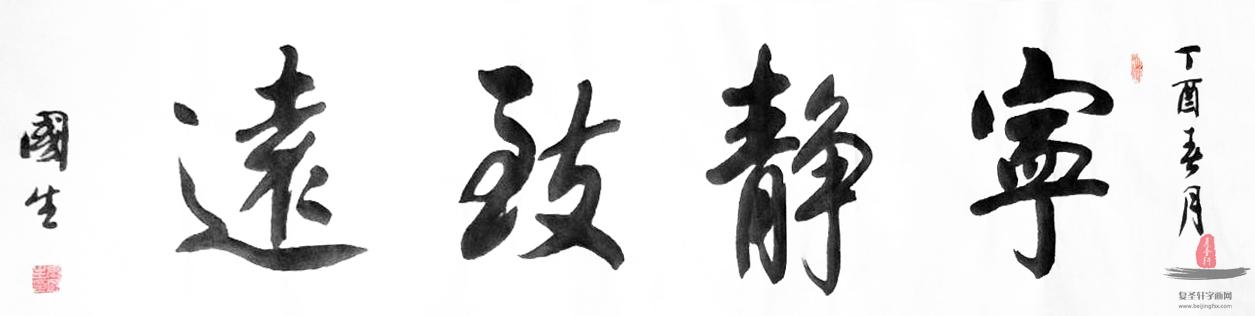 丁酉春月
寧靜致遠
國生
复圣轩字画网
www.beijingfsx.com